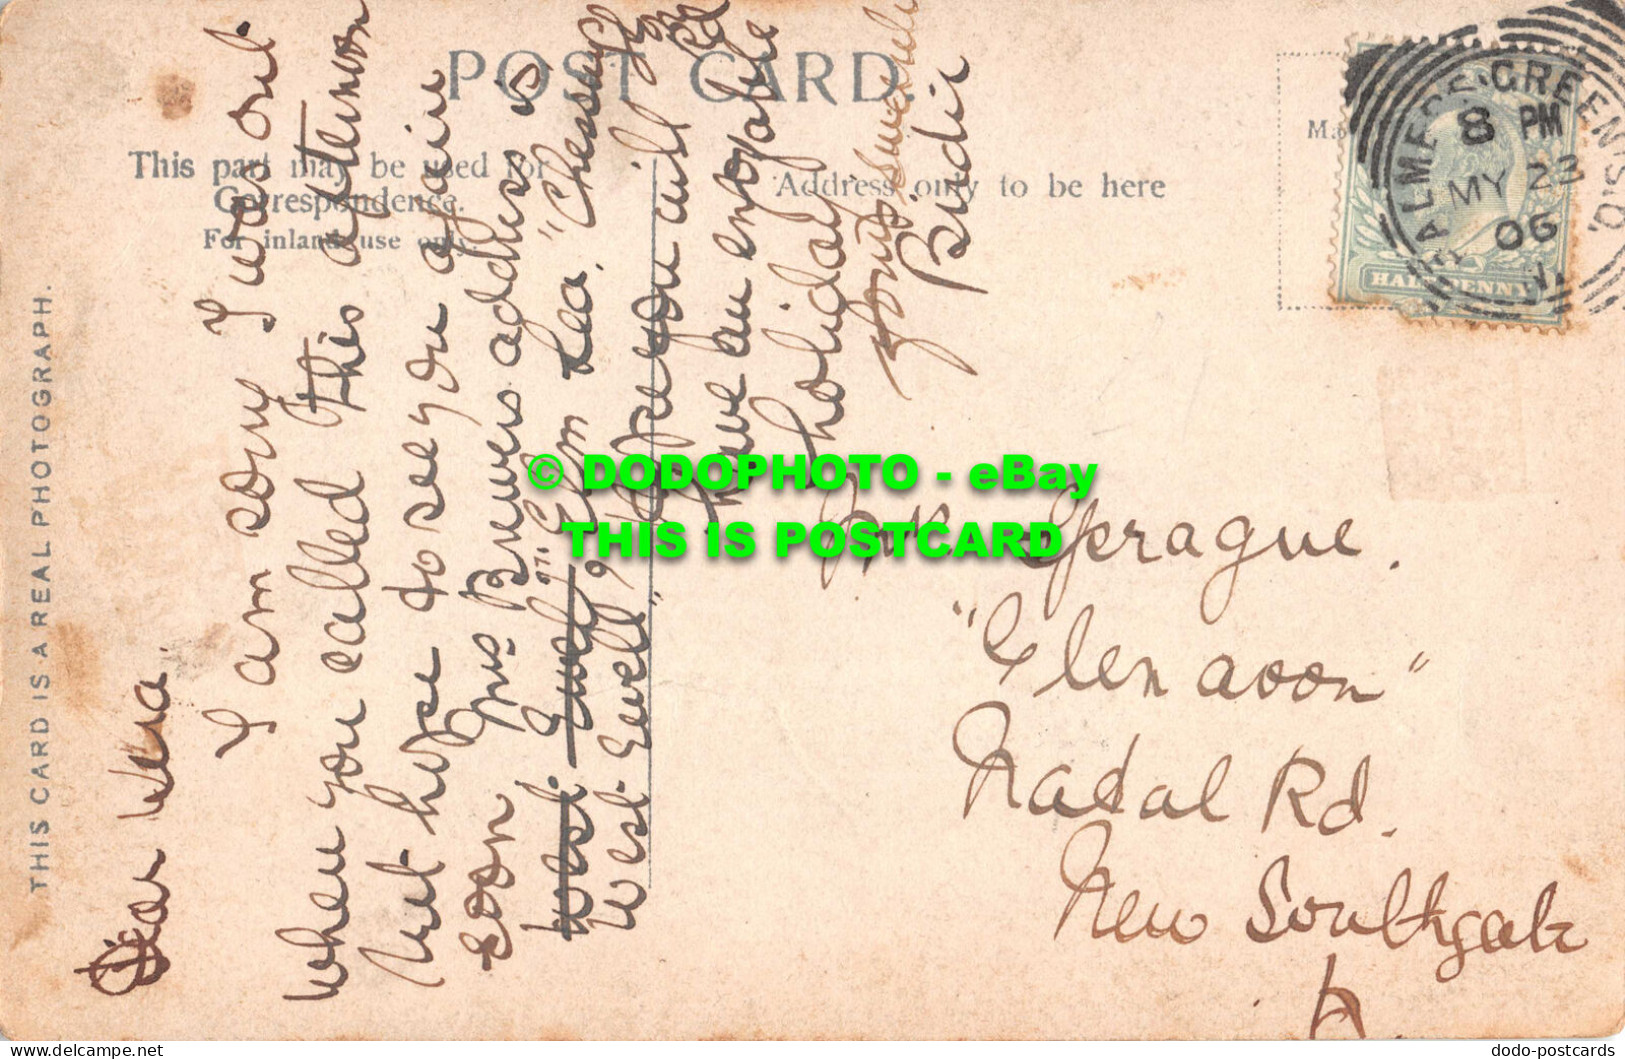 POST CARD.
This part may be used for
Correspondence.
For inland use only.
Address only to be here
THIS CARD IS A REAL PHOTOGRAPH.
PALMERS GREEN S.O.
8 PM
MY 22
06
HALFPENNY
Dear Vera.
I am sorry I was out
when you called this afternoon
but hope to see you again
soon Mrs Brewers address is
West Ewell Elm Lea, "Chessington Rd
West Ewell" I hope you will
have an enjoyable
holiday
Birdie
Sprague.
"Glenavon"
Natal Rd.
New Southgate
N.
© DODOPHOTO - eBay
THIS IS POSTCARD
dodo-postcards
www.delcampe.net